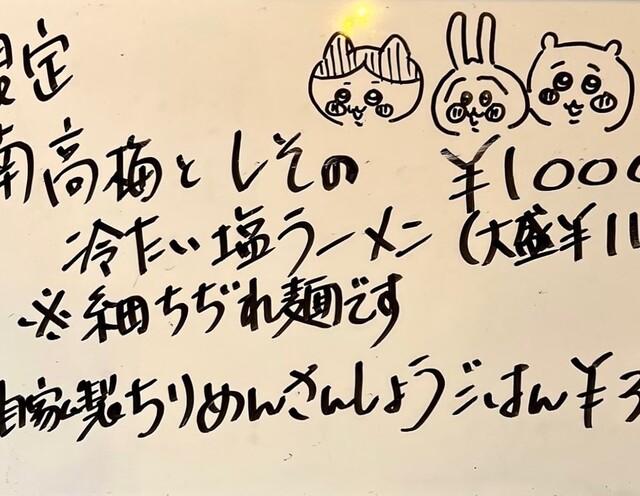 限定
南高梅としその ¥1000
冷たい塩ラーメン (大盛¥11
※細ちぢれ麺です
自家製ちりめんさんしょうごはん ¥3